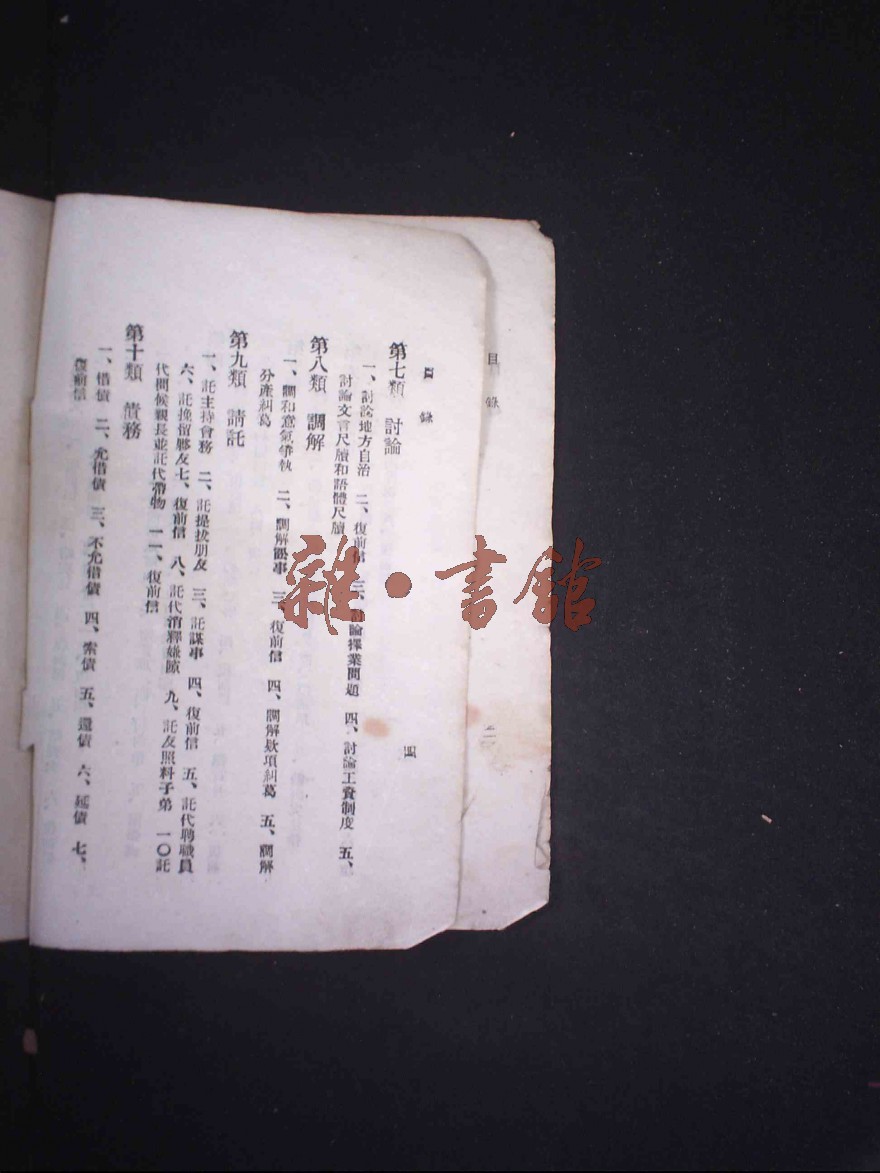 目錄
四
第七類 討論
一、討論地方自治 二、復前信 三、討論擇業問題 四、討論工資制度 五、
討論文言尺牘和語體尺牘
第八類 調解
一、調和意氣爭執 二、調解訟事 三、復前信 四、調解欵項糾葛 五、調解
分產糾葛
第九類 請託
一、託主持會務 二、託提拔朋友 三、託謀事 四、復前信 五、託代聘職員
六、託挽留夥友 七、復前信 八、託代消釋嫌隙 九、託友照料子弟 一〇託
代問候親長並託代帶物 一一、復前信
第十類 債務
一、借債 二、允借債 三、不允借債 四、索債 五、還債 六、延債 七、
復前信
目錄
雜·書館